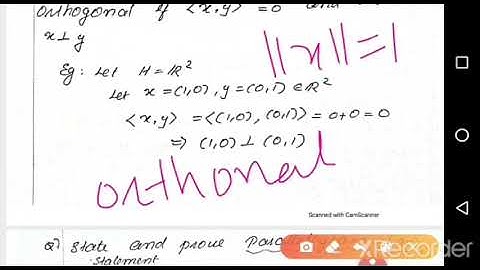 orthogonal if <x,y> = 0 and
x ⊥ y
||x|| = 1
Eg: Let H = ℝ²
Let x = (1,0), y = (0,1) ∈ ℝ²
<x,y> = <(1,0), (0,1)> = 0+0 = 0
⇒ (1,0) ⊥ (0,1)
orthonal
Scanned with CamScanner
Q) State and prove
statement
XRecorder